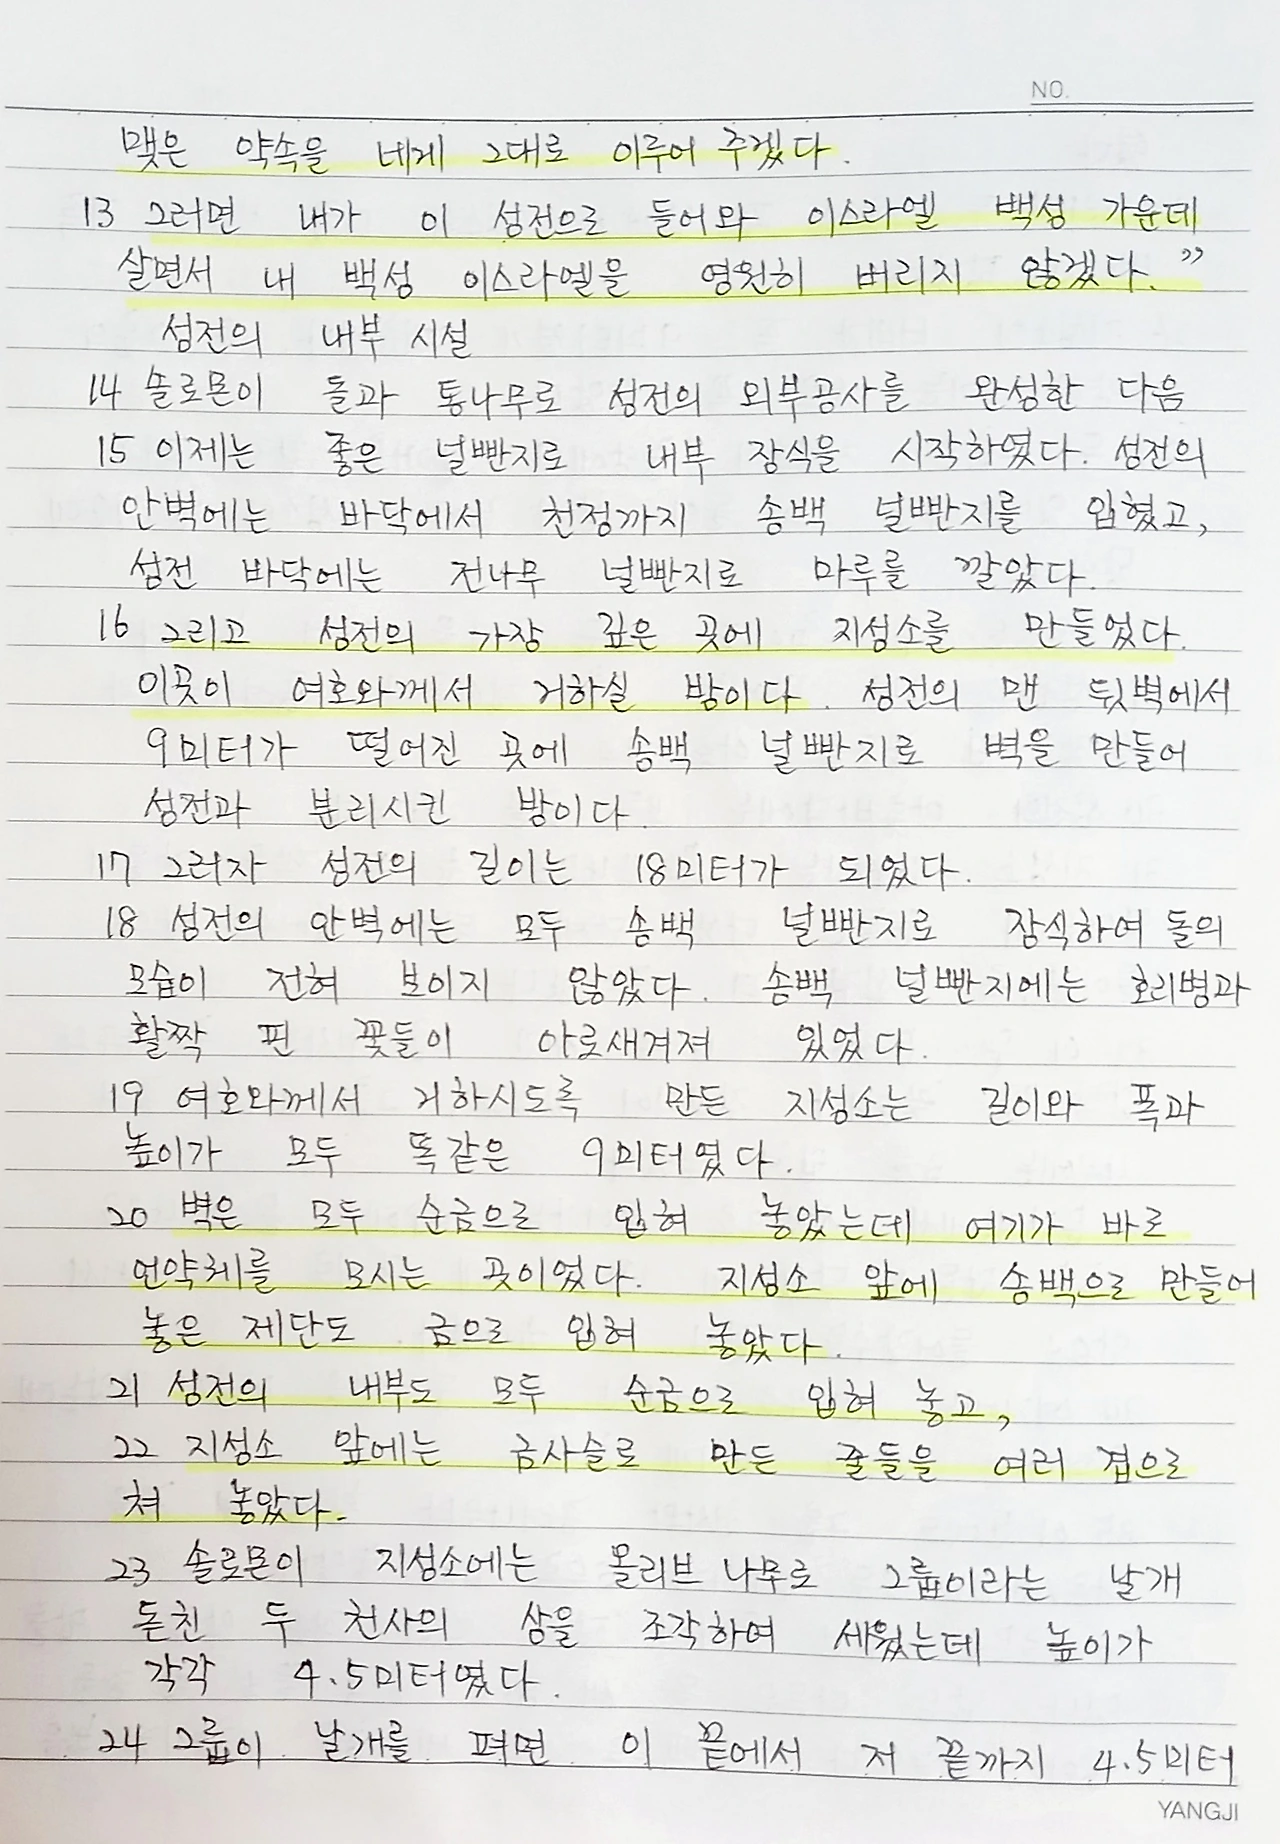 NO.
맺은 약속을 네게 그대로 이루어 주겠다.
13 그러면 내가 이 성전으로 들어와 이스라엘 백성 가운데
살면서 내 백성 이스라엘을 영원히 버리지 않겠다.”
성전의 내부 시설
14 솔로몬이 돌과 통나무로 성전의 외부공사를 완성한 다음
15 이제는 좋은 널빤지로 내부 장식을 시작하였다. 성전의
안벽에는 바닥에서 천정까지 송백 널빤지를 입혔고,
성전 바닥에는 전나무 널빤지로 마루를 깔았다.
16 그리고 성전의 가장 깊은 곳에 지성소를 만들었다.
이곳이 여호와께서 거하실 방이다. 성전의 맨 뒷벽에서
9미터가 떨어진 곳에 송백 널빤지로 벽을 만들어
성전과 분리시킨 방이다.
17 그러자 성전의 길이는 18미터가 되었다.
18 성전의 안벽에는 모두 송백 널빤지로 장식하여 돌의
모습이 전혀 보이지 않았다. 송백 널빤지에는 호리병과
활짝 핀 꽃들이 아로새겨져 있었다.
19 여호와께서 거하시도록 만든 지성소는 길이와 폭과
높이가 모두 똑같은 9미터였다.
20 벽은 모두 순금으로 입혀 놓았는데 여기가 바로
언약궤를 모시는 곳이었다. 지성소 앞에 송백으로 만들어
놓은 제단도 금으로 입혀 놓았다.
21 성전의 내부도 모두 순금으로 입혀 놓고,
22 지성소 앞에는 금사슬로 만든 줄들을 여러 겹으로
쳐 놓았다.
23 솔로몬이 지성소에는 올리브 나무로 그룹이라는 날개
돋친 두 천사의 상을 조각하여 세웠는데 높이가
각각 4.5미터였다.
24 그룹이 날개를 펴면 이 끝에서 저 끝까지 4.5미터
YANGJI